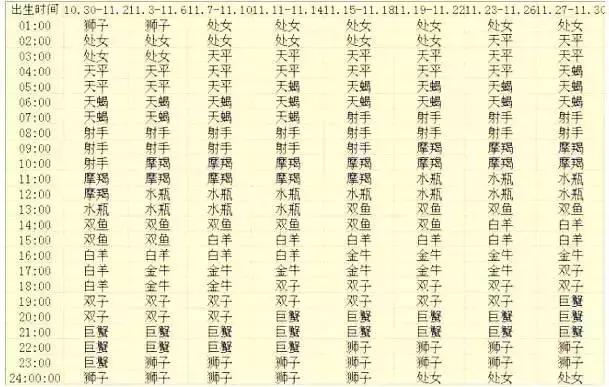 出生时间 10.30-11.2 11.3-11.6 11.7-11.10 11.11-11.14 11.15-11.18 11.19-11.22 11.23-11.26 11.27-11.30
01:00 狮子 狮子 处女 处女 处女 处女 处女 处女
02:00 处女 处女 处女 处女 处女 处女 天平 天平
03:00 处女 处女 天平 天平 天平 天平 天平 天平
04:00 天平 天平 天平 天平 天平 天平 天平 天蝎
05:00 天平 天平 天平 天蝎 天蝎 天蝎 天蝎 天蝎
06:00 天蝎 天蝎 天蝎 天蝎 天蝎 天蝎 天蝎 天蝎
07:00 天蝎 天蝎 天蝎 天蝎 射手 射手 射手 射手
08:00 射手 射手 射手 射手 射手 射手 射手 射手
09:00 射手 射手 射手 射手 射手 摩羯 摩羯 摩羯
10:00 射手 摩羯 摩羯 摩羯 摩羯 摩羯 摩羯 摩羯
11:00 摩羯 摩羯 摩羯 摩羯 摩羯 水瓶 水瓶 水瓶
12:00 摩羯 水瓶 水瓶 水瓶 水瓶 水瓶 水瓶 水瓶
13:00 水瓶 水瓶 水瓶 水瓶 双鱼 双鱼 双鱼 双鱼
14:00 双鱼 双鱼 双鱼 双鱼 双鱼 双鱼 白羊 白羊
15:00 双鱼 双鱼 白羊 白羊 白羊 白羊 白羊 白羊
16:00 白羊 白羊 白羊 白羊 金牛 金牛 金牛 金牛
17:00 白羊 金牛 金牛 金牛 金牛 金牛 金牛 双子
18:00 白羊 金牛 金牛 双子 双子 双子 双子 双子
19:00 双子 双子 双子 双子 双子 双子 双子 巨蟹
20:00 双子 双子 双子 巨蟹 巨蟹 巨蟹 巨蟹 巨蟹
21:00 巨蟹 巨蟹 巨蟹 巨蟹 巨蟹 巨蟹 巨蟹 巨蟹
22:00 巨蟹 巨蟹 巨蟹 巨蟹 狮子 狮子 狮子 狮子
23:00 巨蟹 狮子 狮子 狮子 狮子 狮子 狮子 狮子
24:00:00 狮子 狮子 狮子 狮子 狮子 处女 处女 处女